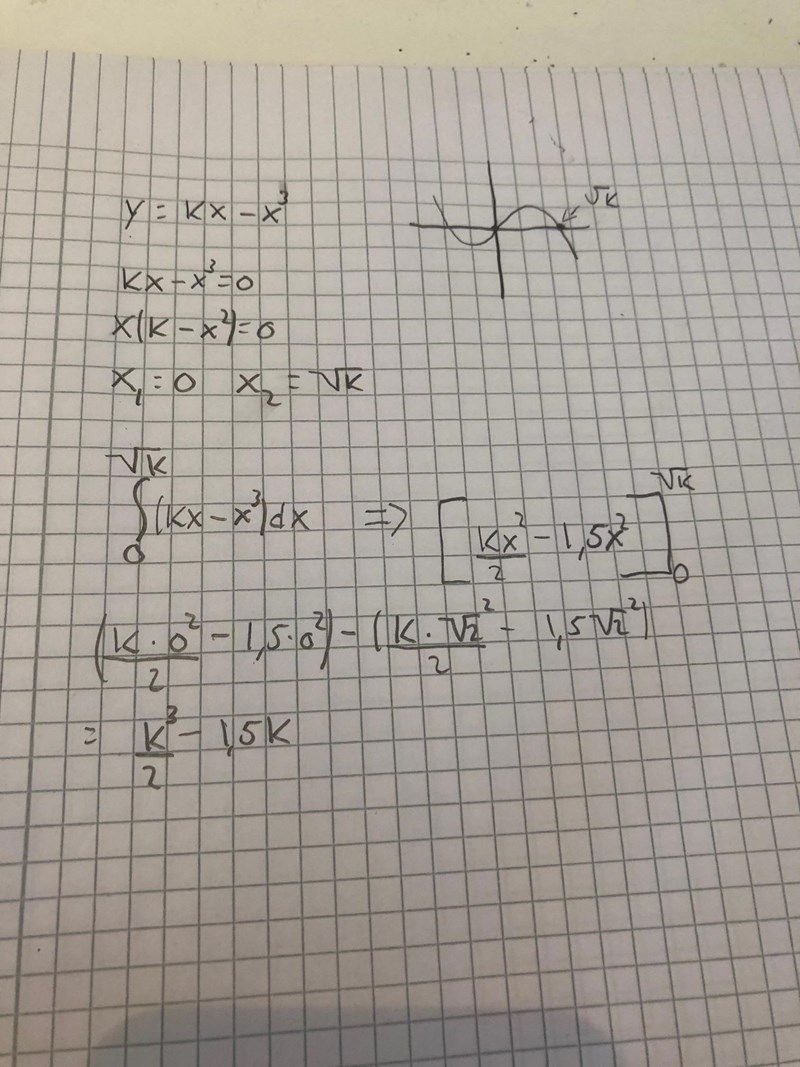 y = kx - x³
√k
kx - x³ = 0
x(k - x²) = 0
x₁ = 0 x₂ = √k
∫₀^√k (kx - x³)dx => [kx²/2 - 1,5x²]₀^√k
(k · 0²/2 - 1,5·0²) - (k · √2²/2 - 1,5√2²)
= k³/2 - 1,5k